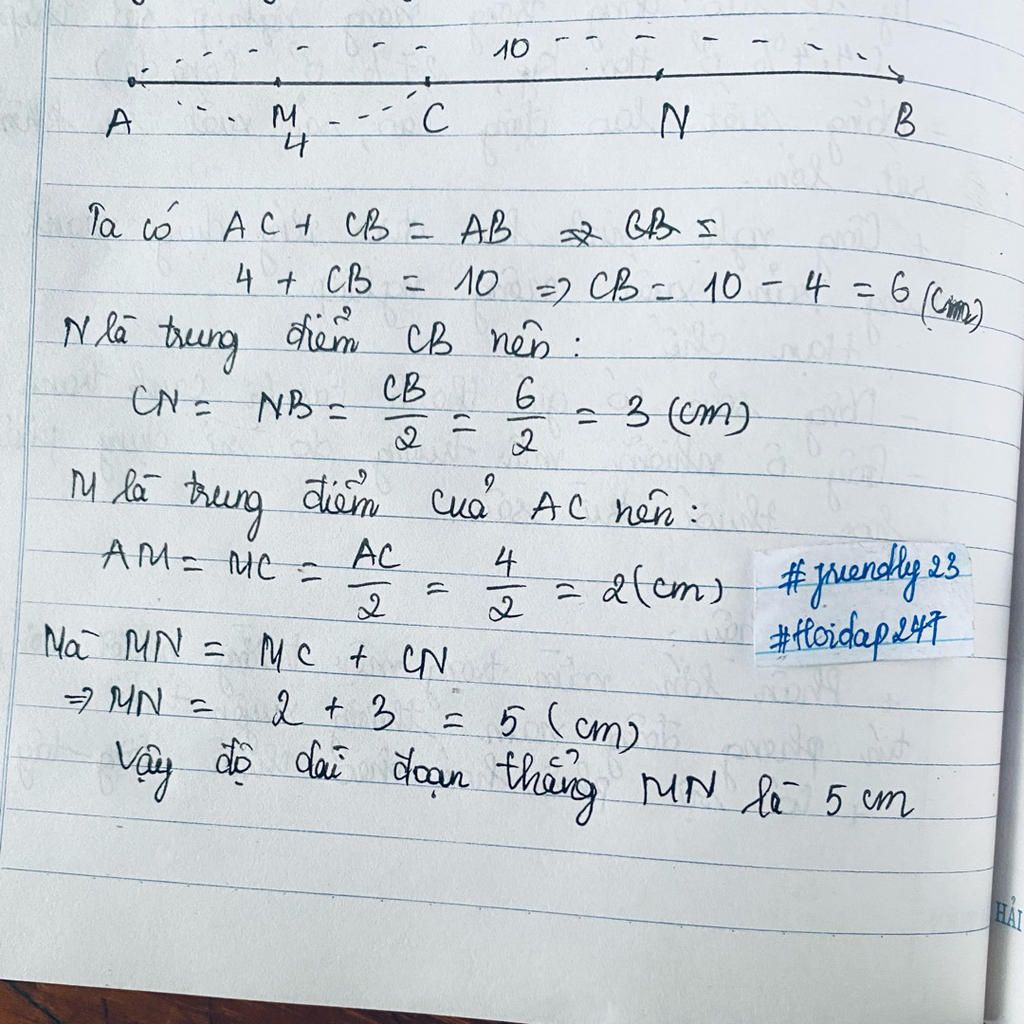 10
A M C N B
4
Ta có AC + CB = AB => CB =
4 + CB = 10 => CB = 10 - 4 = 6 (cm)
N là trung điểm CB nên :
CN = NB = CB/2 = 6/2 = 3 (cm)
M là trung điểm cuả AC nên :
AM = MC = AC/2 = 4/2 = 2 (cm)
#friendly23
#Hoidap247
Mà MN = MC + CN
=> MN = 2 + 3 = 5 (cm)
Vậy độ dài đoạn thẳng MN là 5 cm
HẢI